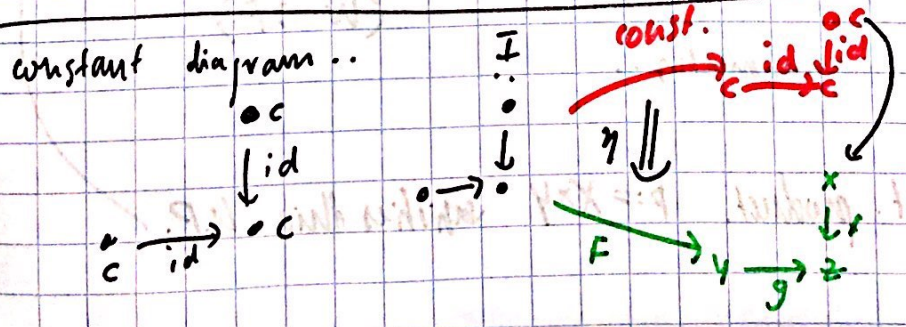 constant diagram ..
• c
id
• c
c
id
I
const.
c
id
c
c
id
η
F
x
f
y
g
z